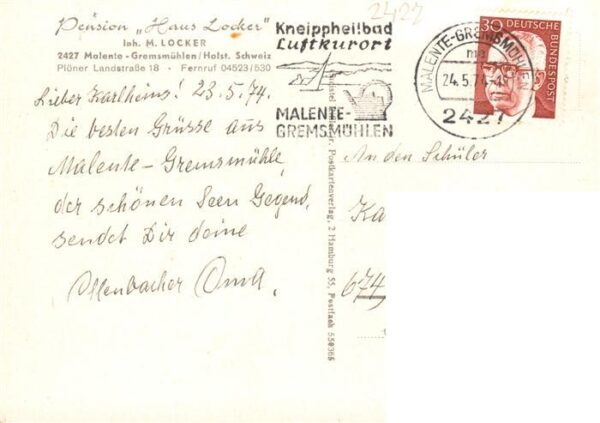 2427
Pension „Haus Locker"
Inh. M. LOCKER
2427 Malente - Gremsmühlen / Holst. Schweiz
Plöner Landstraße 18 - Fernruf 04523/530
Kneippheilbad
Luftkurort
MALENTE-
GREMSMÜHLEN
MALENTE-GREMSMÜHLEN
24.5.74
2427
30 DEUTSCHE
BUNDESPOST
Lieber Karlheins! 23.5.74.
Die besten Grüsse aus
Malente-Gremsmühle,
der schönen Seen Gegend,
sendet Dir deine
Offenbacher Oma.
Postkartenverlag, 2 Hamburg 55, Postfach 550365
An den Schüler
Ka
674